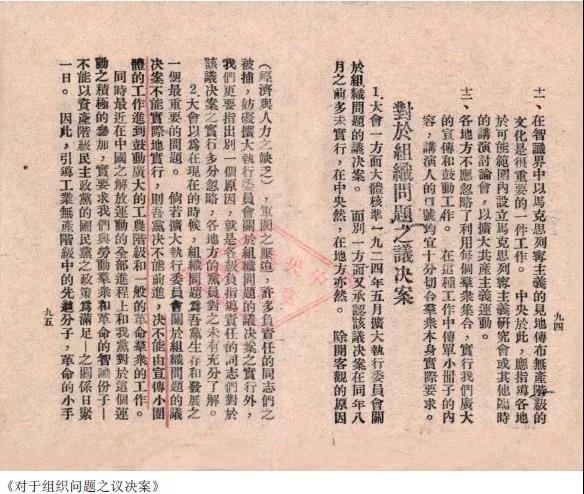 十一、在智識界中以馬克思列寧主義的見地傳布無產階級的
文化是很重要的一件工作。中央於此，應指導各地
於可能範圍內設立馬克思列寧主義研究會或其他臨時
的講演討論會，以擴大共產主義運動。
十二、各地方不應忽略了利用每個羣衆集合，實行我們廣大
的宣傳和鼓動工作。在這種工作中傳單小冊子的內
容，講演人的口號均宜十分切合羣衆本身實際要求。
對於組織問題之議决案
1.大會一方面大體核準一九二四年五月擴大執行委員會關
於組織問題的議决案。而別一方面又承認該議决案在同年八
月之前多未實行，在中央然，在地方亦然。除開客觀的原因
九四
（經濟與人力之缺乏），軍閥之壓迫，許多負責任的同志們之
被捕，妨礙擴大執行委員會關於組織問題的議决案之實行外，
我們更要指出別一個原因，就是各級負指導責任的同志們對於
該議决案之實行多分忽略，各地方的黨員對之未有充分了解。
2.大會以爲在現在的時候，組織問題爲吾黨生存和發展之
一個最重要的問題。倘若擴大執行委員會關於組織問題的議
决案不能實際地實行，則吾黨决不能前進，决不能由宣傳小團
體的工作進到鼓動廣大的工農階級和一般的革命羣衆的工作。
同時最近在中國之解放運動的全部進程上和我黨對於這個運
動之積極的參加，實要求我們與勞動羣衆和革命的智識份子—
不能以資產階級民主政黨的國民黨之政策爲滿足—之關係日緊
一日。因此，引導工業無產階級中的先趨分子，革命的小手
九五
《对于组织问题之议决案》